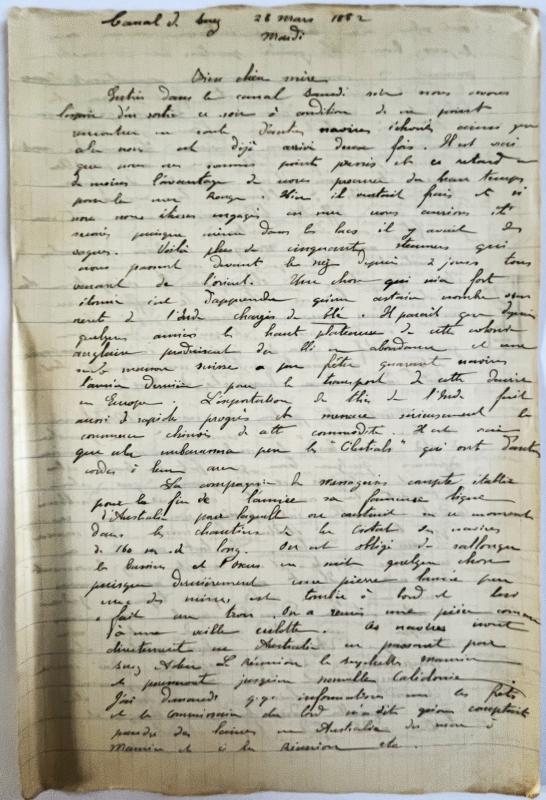 Canal de Suez 28 Mars 1882
Mardi
Bien chère mère
Entrés dans le canal Samedi soir nous avons
l'espoir d'en sortir ce soir à condition de ne point
rencontrer en route d'autres navires échoués ainsi que
cela nous est déjà arrivé deux fois. Il est vrai
que nous ne sommes point pressés et ce retard a
du moins l'avantage de nous procurer du beau temps
pour la mer Rouge. Hier il ventait frais et si
nous nous étions engagés en mer nous aurions été
puisque même dans les lacs il y avait des
vagues. Voilà plus de cinquante steamers qui
nous passent devant le nez depuis 2 jours tous
venant de l'orient. Une chose qui m'a fort
étonné c'est d'apprendre qu'un certain nombre
de l'Inde chargés de blé. Il parait que depuis
quelques années les hauts plateaux de cette colonie
anglaise produisent du blé en abondance et une
seule maison suisse a pu fréter quarante navires
l'année dernière pour le transport de cette denrée
en Europe. L'exportation de blés de l'Inde fait
aussi de rapides progrès et menace sérieusement le
commerce chinois de cette commodité. Il est vrai
que cela embarrassera peu les "Celestials" qui ont d'autres
cordes à leur arc
La compagnie des messageries compte établir
pour la fin de l'année sa fameuse ligne
d'Australie pour laquelle on construit en ce moment
dans les chantiers de la Ciotat des navires
de 160 m. de long. On est obligé de rallonger
les bassins et l'Oxus en sait quelque chose
puisque dernièrement une pierre lancée par
une des mines est tombée à bord et leur
a fait un trou. On a remis une pièce comme
à une vieille culotte. Ces navires iront
directement en Australie en passant par
Suez Aden La Réunion les Seychelles Maurice
et pousseront jusqu'en nouvelle Calédonie
J'ai demandé q.q. informations sur les frêts
et le commissaire du bord m'a dit qu'on comptait
prendre des laines en Australie du sucre à
Maurice et à la Réunion etc.